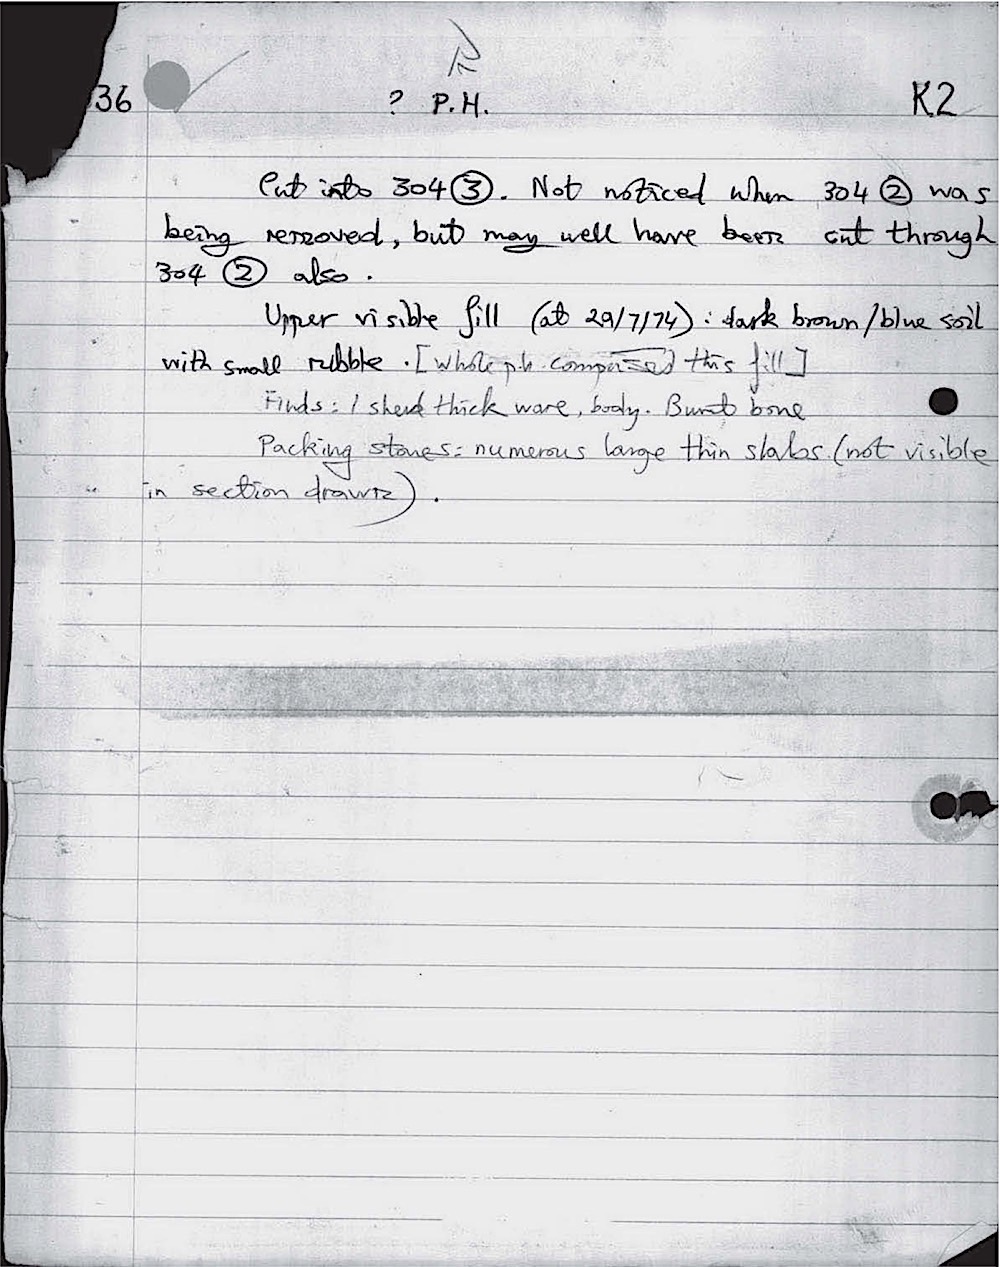 36 ? P.H. K2
Cut into 304 ③. Not noticed when 304 ② was
being removed, but may well have been cut through
304 ② also.
Upper visible fill (at 29/7/74): dark brown/blue soil
with small rubble. [Whole p.h. comprised this fill]
Finds: 1 sherd thick ware, body. Burnt bone
Packing stones: numerous large thin slabs (not visible
in section drawn).